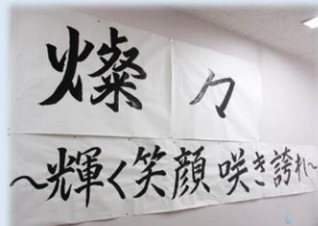 燦々
~輝く笑顔咲き誇れ~